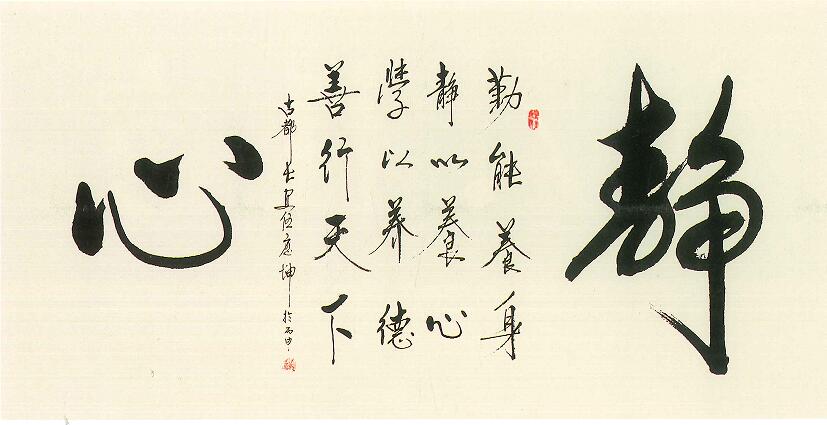 靜
勤能養身
靜以養心
學以养德
善行天下
古都長安伍應坤於丙申
心